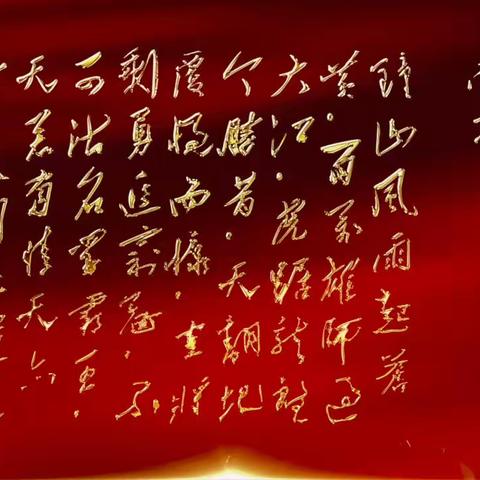 鐘山風雨起蒼
黄。百万雄师过
大江。虎踞龍盤
今勝昔。天翻地
覆慨而慷。宜將
剩勇追窮寇。不
可沽名學霸王。
天若有情天亦